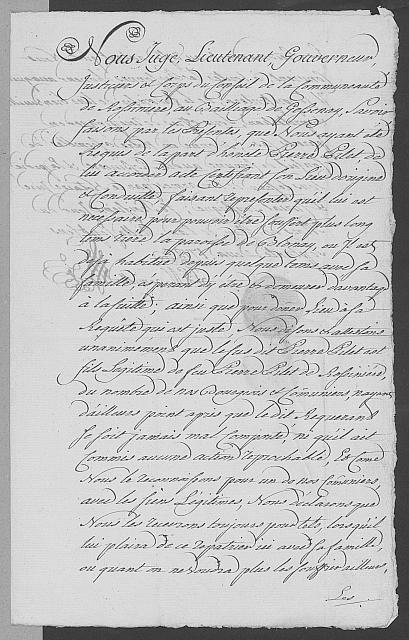 Nous Juge, Lieutenant, Gouverneur
Justiciers & Corps du Conseil de la Communauté
de Rossiniere, au Bailliage de Gessenay, Savoir
faisons par les Presentes, que Nous ayant été
Requis de la part d'honète Pierre Pilet, de
lui accorder acte Certifiant son Lieu d'origine
& Conduitte, faisant representer qu'il lui est
necessaire pour pouvoir être souffert plus long
tems rière la paroisse de Blonay, ou Il est
deja habitué depuis quelque tems avec sa
famille, aspirant d'y être & demeurer davantage
à la suitte; ainsi que pour doner Lieu à sa
Requête qui est juste, Nous disons & attestons
unanimement que le sus dit Pierre Pilet est
fils Légitime de feu Pierre Pilet de Rossiniere,
du nombre de nos Bourgeois & Comuniers, n'ayant
dailleurs point apris que le dit Requerant
se soit jamais mal Comporté, ni qu'il ait
Commis aucune action reprochable, Et come
Nous le reconnoissons pour un de nos Comuniers,
avec les siens Légitimes, Nous déclarons que
Nous les recevrons toujours pour tels, lorsqu'il
lui plaira de se repatrier ici avec sa famille,
ou quant on ne voudra plus les souffrir ailleurs,
Les